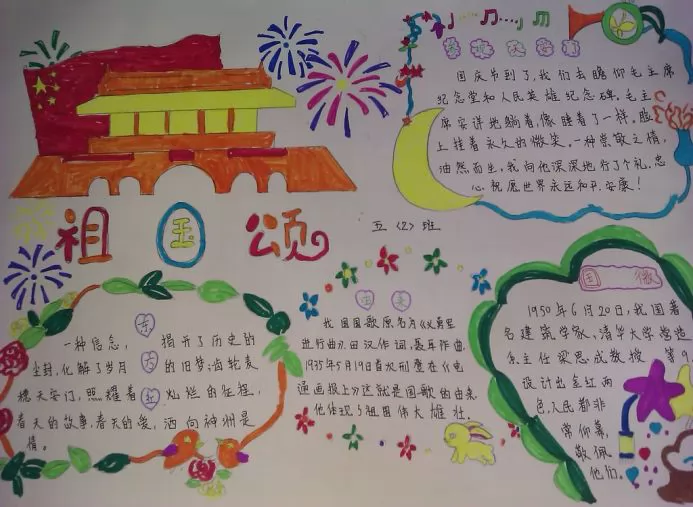 祖国颂
五〈2〉班
国庆节到了,我们去瞻仰毛主席
纪念堂和人民英雄纪念碑。毛主
席安详地躺着,像睡着了一样。脸
上挂着永久的微笑。一种崇敬之情,
油然而生,我向他深深地行了个礼,忠
心祝愿世界永远和平、安康!
东
方
红
一种信念,揭开了历史的
尘封,化解了岁月的旧梦;齿轮麦
穗天安门,照耀着灿烂的征程,
春天的故事,春天的爱,洒向神州是
情。
我国国歌原名为《义勇军
进行曲》,田汉作词,聂耳作曲,
1935年5月19日首次刊虞在《电
通画报上》这就是国歌的由来,
他体现了祖国伟大雄壮.
国徽
1950年6月20日,我国著
名建筑学家、清华大学营造
系主任梁思成教授
设计出金红两
色,人民都非
常仰慕,
敬佩
他们。